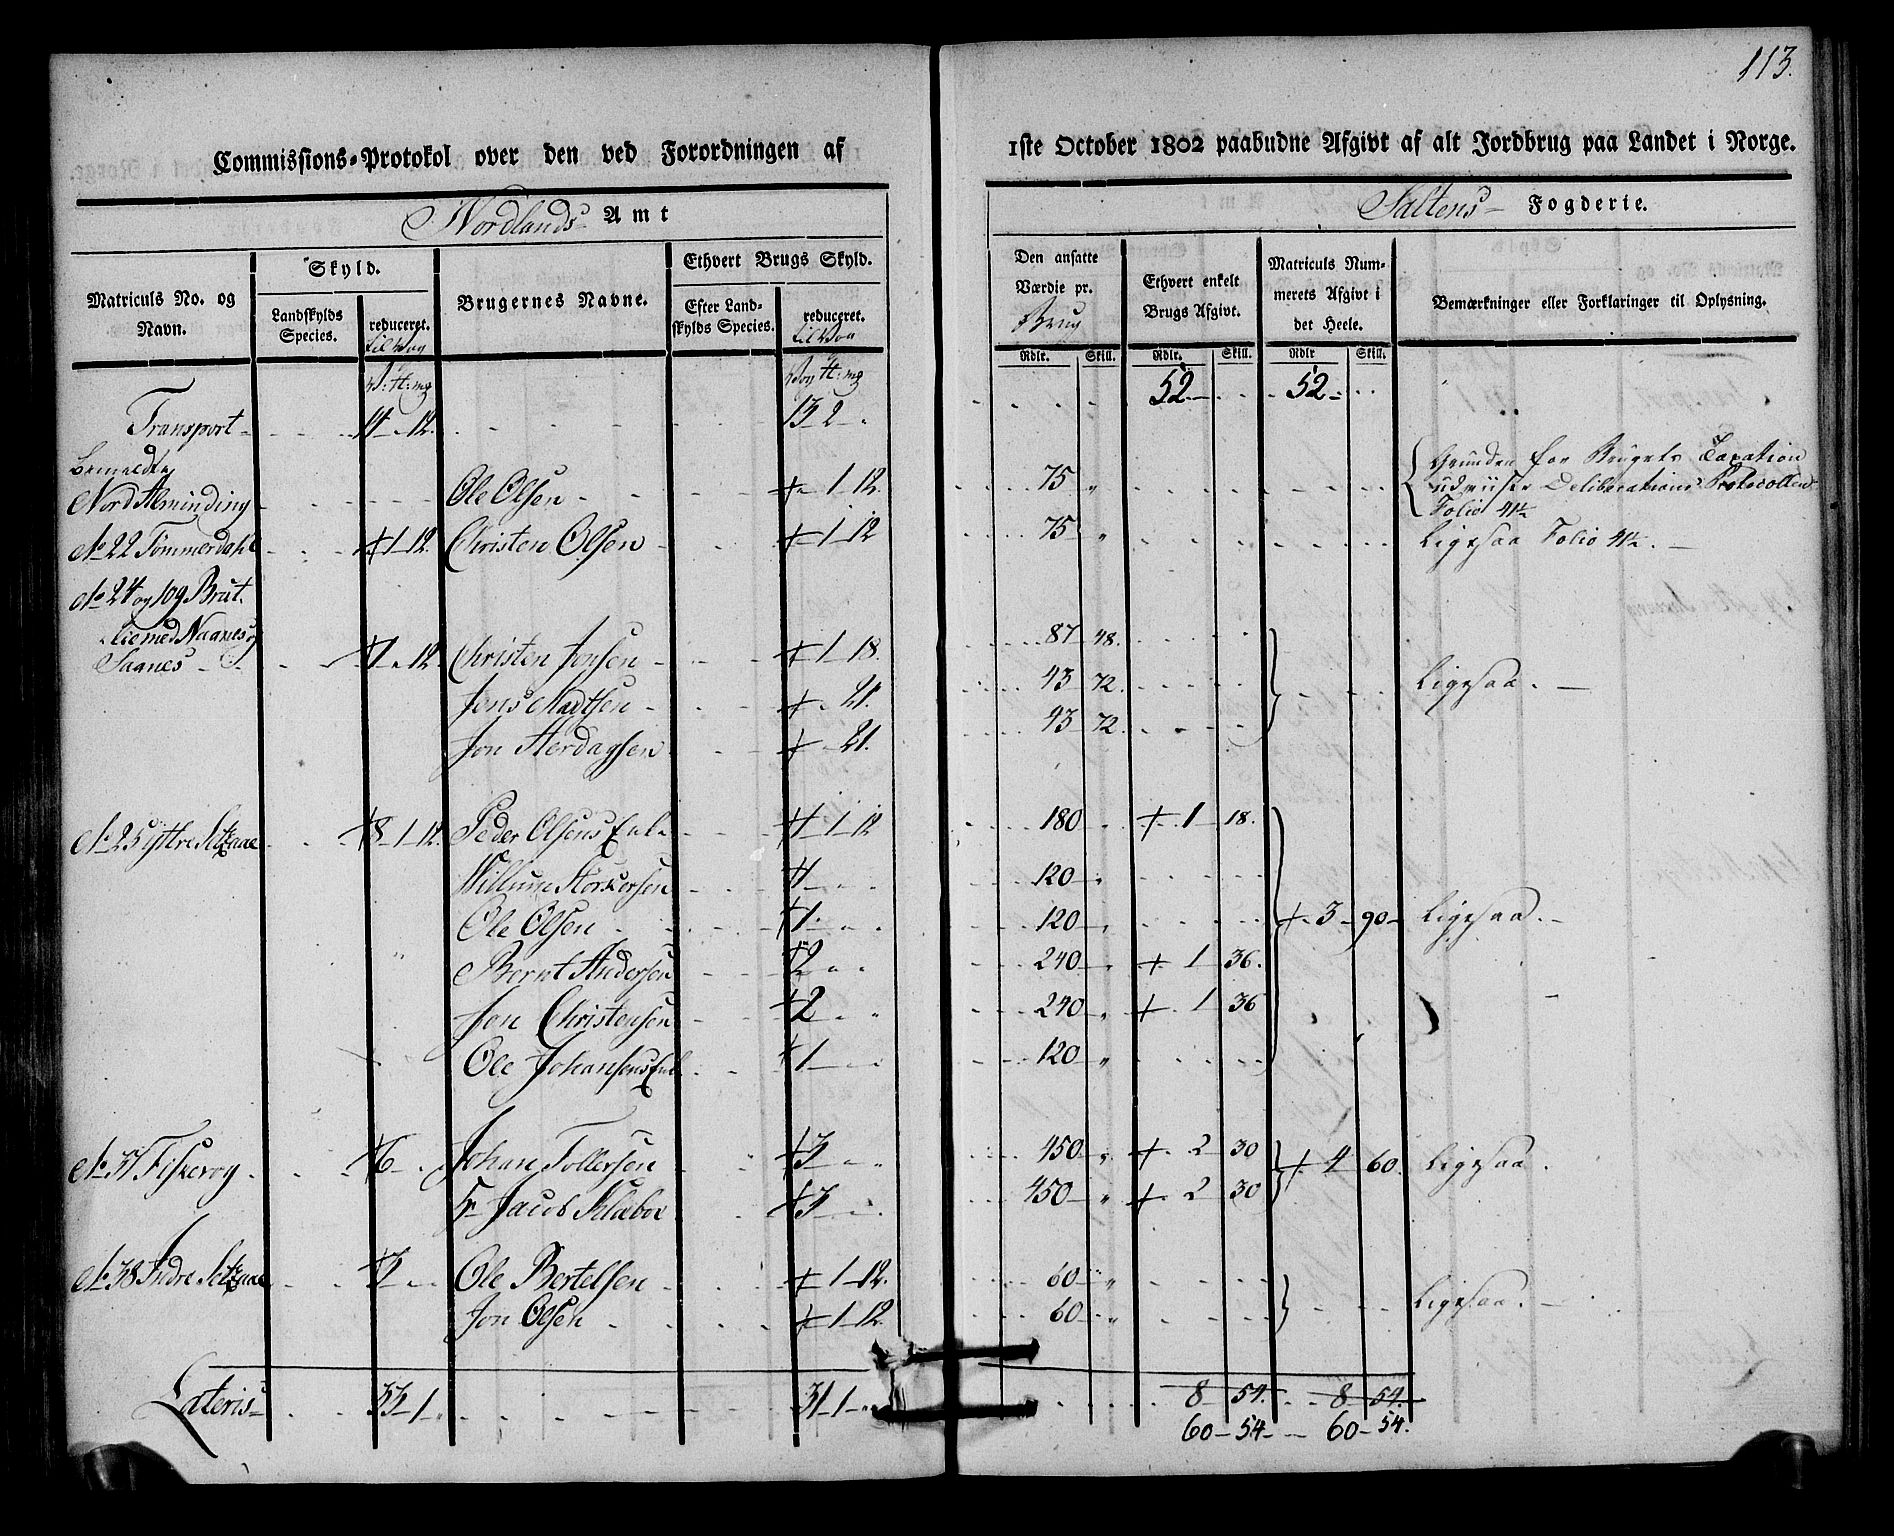 113.
Commissions-Protokol over den ved Forordningen af 1ste October 1802 paabudne Afgivt af alt Jordbrug paa Landet i Norge.
Nordlands Amt
Saltens Fogderie.
Matriculs No. og Navn.
Skyld.
Landskylds Species.
reduceret. til Wog
Brugernes Navne.
Ethvert Brugs Skyld.
Efter Landskylds Species.
reduceret. til Wog
Den ansatte Værdie pr. Brug
Rdlr. Skill.
Ethvert enkelt Brugs Afgivt.
Rdlr. Skill.
Matriculs Nummerets Afgivt i det Heele.
Rdlr Skill.
Bemærkninger eller Forklaringer til Oplysning.
Transport 14 - 12. 13 2 - 52 - 52 -
bemeldte
Nord Alminding Ole Olsen 1 12. 75 " Grunden for Brugets Taxation
udviiser Deliberations Protocollen
Folio 41
No 22 Tømmerdahl 1 12. Christen Olsen 1 12 75 " Ligesaa Folio 41
No 24 og 109 Brut-
lie med Naanes og
Saanes 7 - 12. Christen Jensen 1 18. 87 48. Ligesaa
Jens Madtsen - 21. 43 72.
Jon Herdagsen - 21. 43 72.
No 25 yttre Setzaae 8 1 12. Peder Olsens Enke 1 1 12 180 1 18.
Willum 1 120
Ole Olsen 1 120 3 90 Ligesaa
Bernt Andersen 2 240 1 36.
Jon Christensen 2 240 1 36
Ole Johansens Enke 1 120
No 37 Fiskevog 6 Johan Tollersen 3 450 2 30 4 60. Ligesaa
Hr Jacob Klæboe 3 450 2 30
No 38 Indre Setzaae 3 Ole Bertelsen 1 12. 60 Ligesaa
Jon Olsen 1 12. 60
Lateris 33 1 31 1 8 54. 8 54.
60 - 54 - 60 - 54.